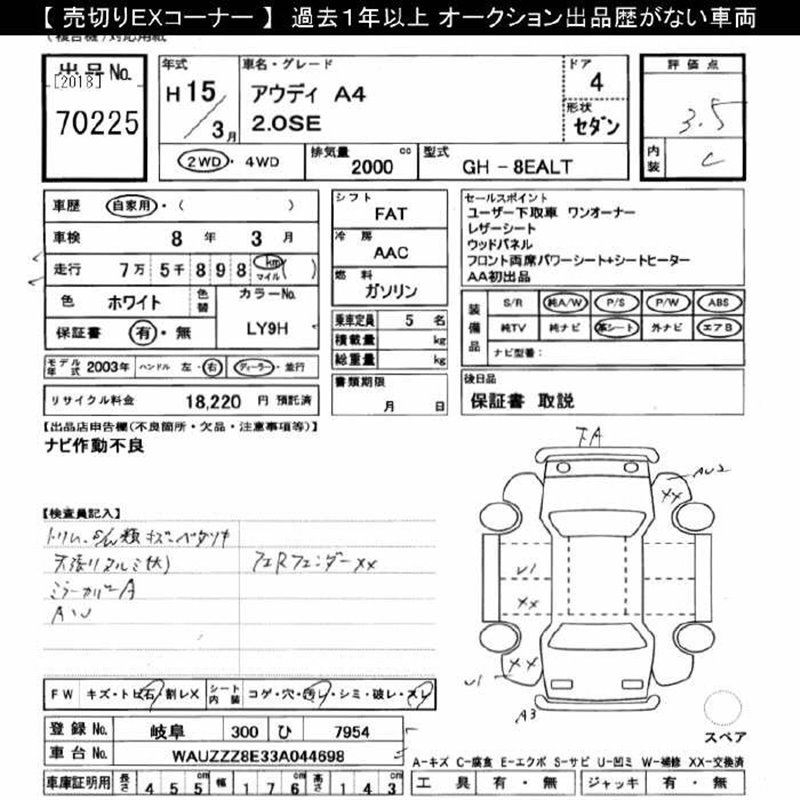 【 売切りEXコーナー 】 過去1年以上 オークション出品歴がない車両
出品No. [2018] 70225
年式 H15/3月
車名・グレード アウディ A4 2.0SE
ドア 4
形状 セダン
評価点 3.5
内装 C
2WD・4WD
排気量 2000 cc
型式 GH - 8EALT
車歴 自家用・( )
車検 8年 3月
走行 7万 5千 8 9 8 km マイル ( )
色 ホワイト 色替
カラーNo. LY9H
保証書 有・無
モデル年式 2003年 ハンドル 左・右 ディーラー・並行
リサイクル料金 18,220 円 預託済
シフト FAT
冷房 AAC
燃料 ガソリン
乗車定員 5 名
積載量 kg
総重量 kg
書類期限 月 日
セールスポイント
ユーザー下取車 ワンオーナー
レザーシート
ウッドパネル
フロント両席パワーシート+シートヒーター
AA初出品
装備品 S/R 純A/W P/S P/W ABS
純TV 純ナビ 革シート 外ナビ エアB
ナビ型番:
後日品
保証書 取説
【出品店申告欄(不良箇所・欠品・注意事項等)】
ナビ作動不良
【検査員記入】
ミラーカバーA
AW
フエRフェンダーXX
FA
AU2
XX
U1
XX
XX
U1
A3
スペア
FW キズ・トビ石・割レX
シート内装 コゲ・穴・汚レ・シミ・破レ・スレ
登録No. 岐阜 300 ひ 7954
車台No. WAUZZZ8E33A044698
A-キズ C-腐食 E-エクボ S-サビ U-凹ミ W-補修 XX-交換済
車庫証明用 長さ 455cm 幅 176cm 高さ 143cm
工具 有・無 ジャッキ 有・無